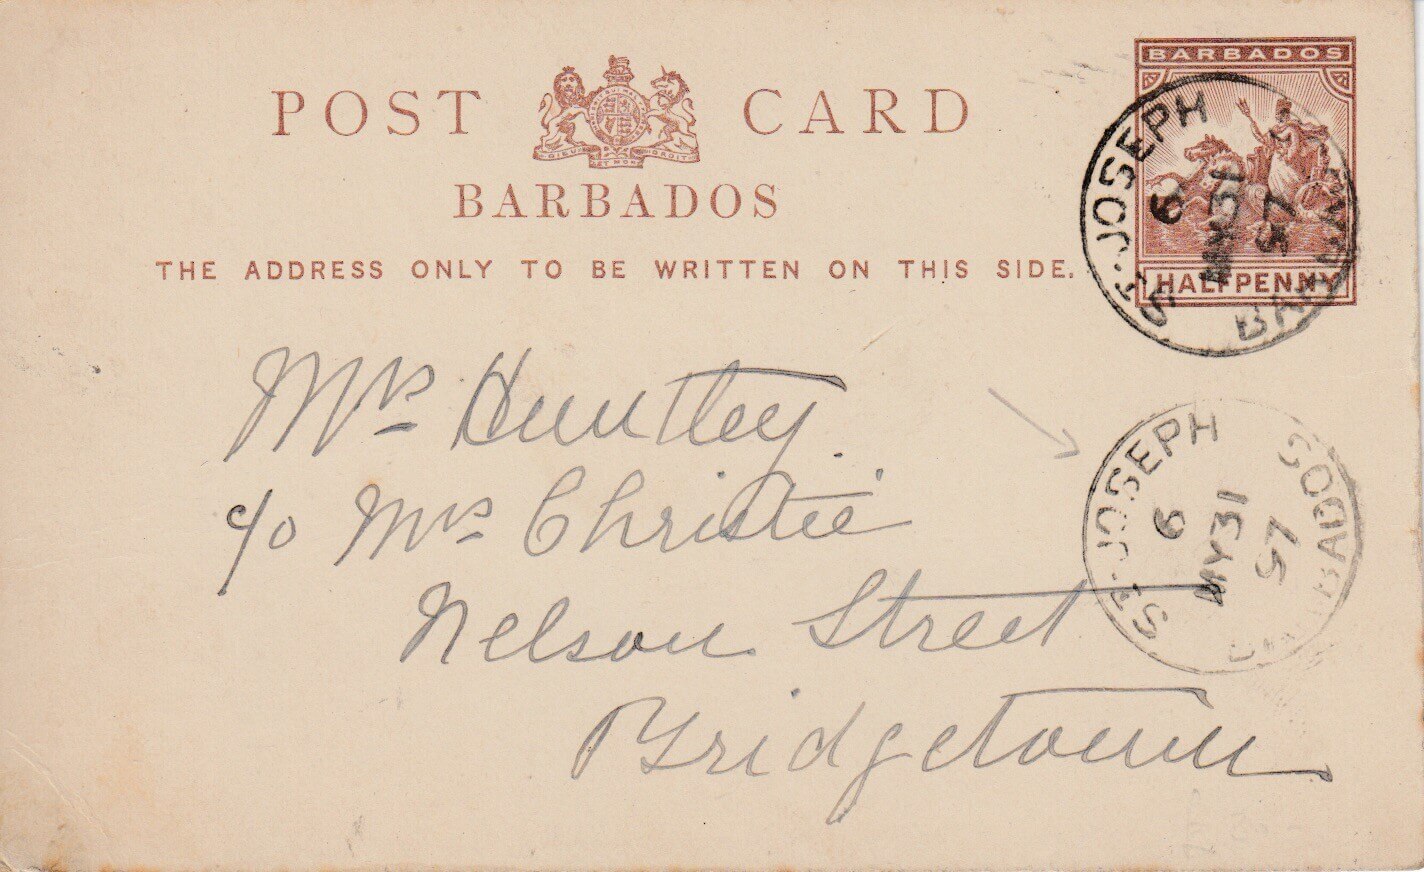 BARBADOS
POST CARD
DIEU ET MON DROIT
BARBADOS
THE ADDRESS ONLY TO BE WRITTEN ON THIS SIDE.
HALFPENNY
ST. JOSEPH
6
MY 31
97
BARBADOS
Mrs Huntley
c/o Mrs Christie
Nelson Street
Bridgetown
ST. JOSEPH
6
MY 31
97
BARBADOS